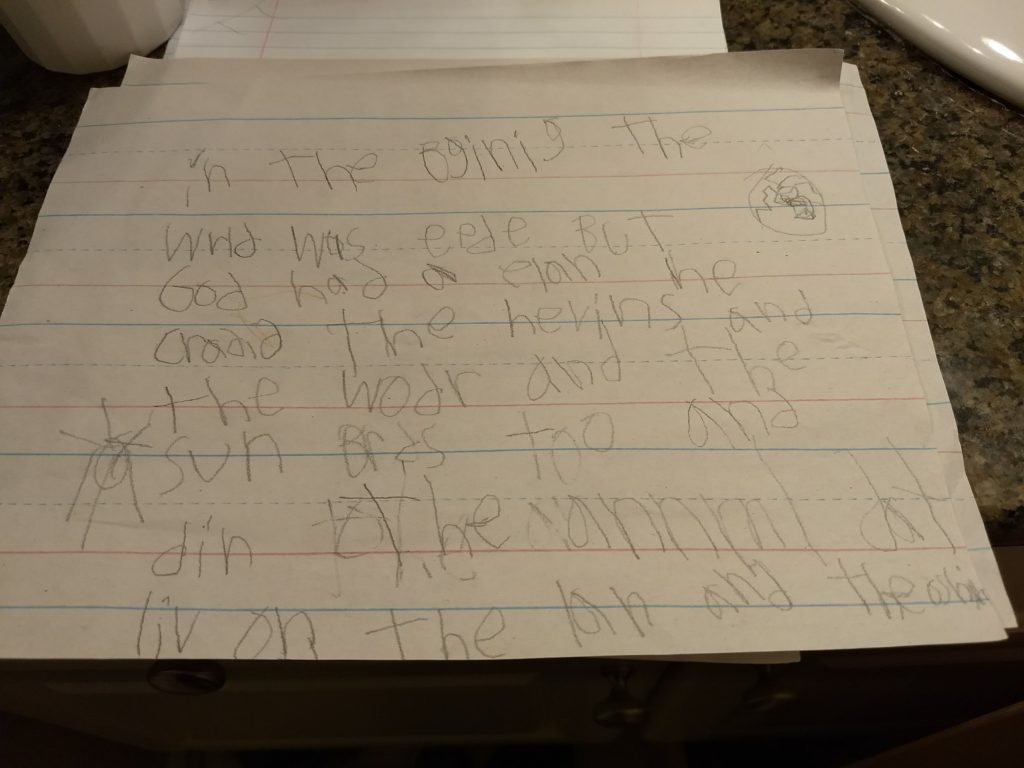 in the Bginig the
wrld was eede But
God had a elan he
craadid the hevins and
the wodr and the
sun Brds too and
din the annmml dat
liv on the lan and the